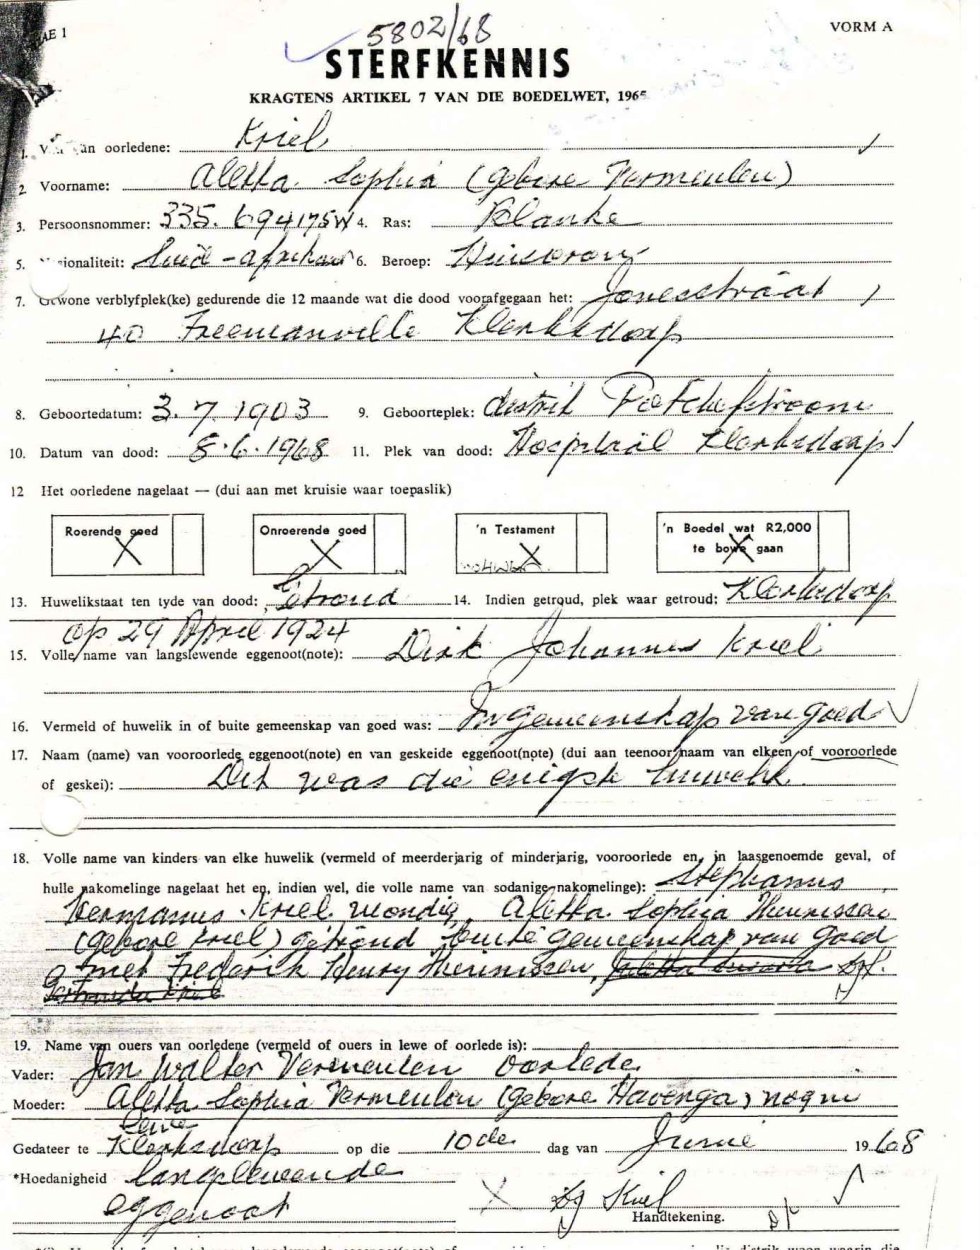 5802/68
VORM A
STERFKENNIS
KRAGTENS ARTIKEL 7 VAN DIE BOEDELWET, 1965
1. van oorledene: Kriel
2. Voorname: Aletta Sophia (gebore Vermeulen)
3. Persoonsnommer: 335.694175W 4. Ras: Blanke
5. Nasionaliteit: Suid-afrikaans 6. Beroep: Huisvrou
7. Gewone verblyfplek(ke) gedurende die 12 maande wat die dood voorafgegaan het: Jonesstraat
40 Freemanville Klerksdorp
8. Geboortedatum: 3.7.1903 9. Geboorteplek: distrik Potchefstroom
10. Datum van dood: 8.6.1968 11. Plek van dood: Hospitaal Klerksdorp
12 Het oorledene nagelaat — (dui aan met kruisie waar toepaslik)
Roerende goed X Onroerende goed X 'n Testament X 'n Boedel wat R2,000
te bowe gaan X
13. Huwelikstaat ten tyde van dood: Getroud 14. Indien getroud, plek waar getroud: Klerksdorp
op 29 April 1924
15. Volle name van langslewende eggenoot(note): Dirk Johannes Kriel
16. Vermeld of huwelik in of buite gemeenskap van goed was: In gemeenskap van goed
17. Naam (name) van vooroorlede eggenoot(note) en van geskeide eggenoot(note) (dui aan teenoor naam van elkeen of vooroorlede
of geskei): Dit was die enigste huwelik
18. Volle name van kinders van elke huwelik (vermeld of meerderjarig of minderjarig, vooroorlede en, in laasgenoemde geval, of
hulle nakomelinge nagelaat het en, indien wel, die volle name van sodanige nakomelinge): Stephanus
Hermanus Kriel mondig, Aletta Sophia Theunissen
(gebore Kriel) getroud buite gemeenskap van goed
met Frederik Henry Theunissen,
19. Name van ouers van oorledene (vermeld of ouers in lewe of oorlede is):
Vader: Jan Walter Vermeulen oorlede
Moeder: Aletta Sophia Vermeulen (gebore Havenga) nog in
lewe
Gedateer te Klerksdorp op die 10de dag van Junie 1968
*Hoedanigheid langslewende
eggenoot
X DJ Kriel
Handtekening.